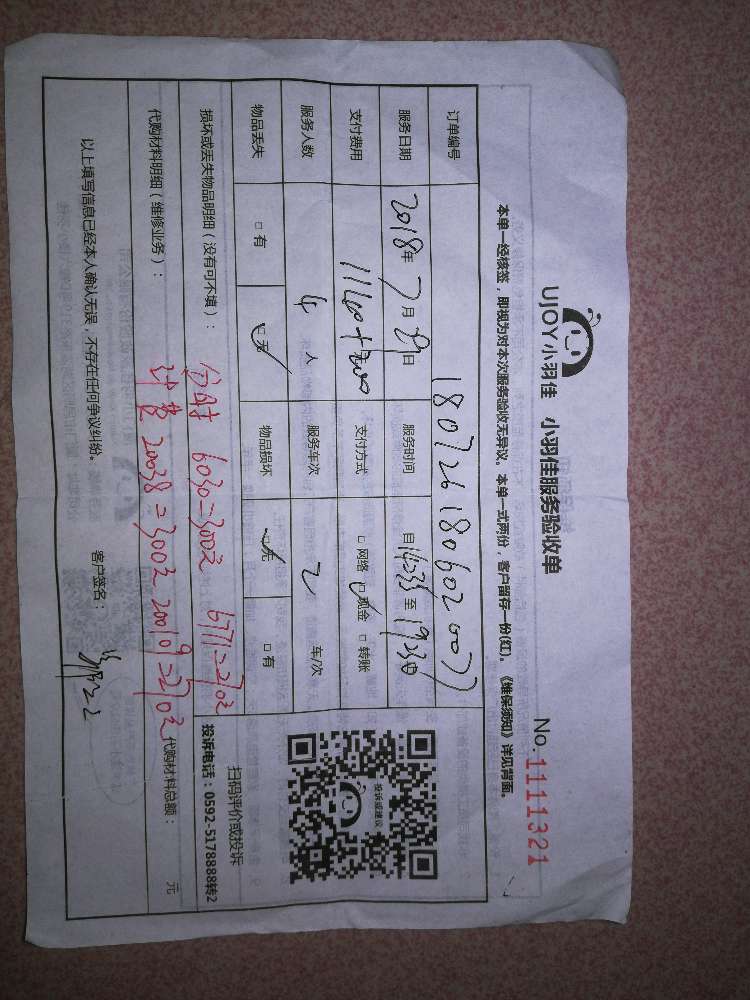 UJOY小羽佳 小羽佳服务验收单
No.1111321
本单一经核签，即视为对本次服务验收无异议。本单一式两份，客户留存一份(红)。《维保须知》详见背面。
订单编号 180726180602007
服务日期 2018年7月 日 服务时间 自 至1930
支付费用 支付方式 □网络 □现金 □转账
服务人数 4人 服务车次 2 车/次
物品丢失 □有 □无 物品损坏 □无 □有
损坏或丢失物品明细（没有可不填）： 6030=300元 6771=270元
代购材料明细（维修业务）： 20038=300元 200109=270元 代购材料总额： 元
以上填写信息已经本人确认无误，不存在任何争议纠纷。 客户签名：
投诉或建议
扫码评价或投诉
投诉电话：0592-5178888转2